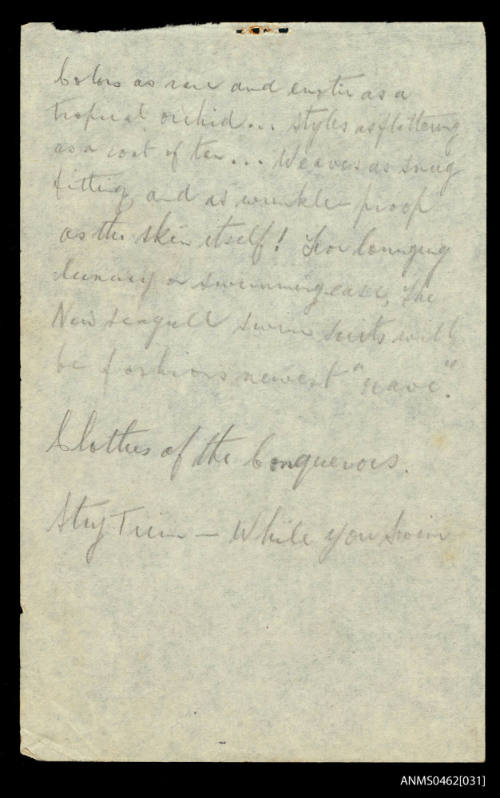 Colors as rare and exotic as a
tropical orchid... styles as flattering
as a coat of tan... Weaves as snug
fitting and as wrinkle-proof
as the skin itself! For lounging
luxury or swimming ease, the
New Seagull swim suits will
be fashions newest "wave".
Clothes of the Conquerors.
Stay Trim — While you Swim
ANMS0462[031]